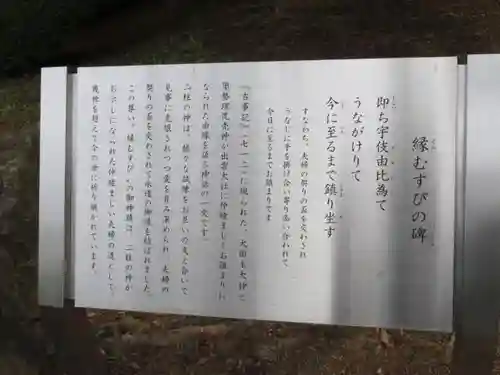 縁むすびの碑
即ち宇伎由比為て
うながけりて
今に至るまで鎮り坐す
すなわち、夫婦の契りの盃を交わされ
うなじに手を掛け合い寄り添い合われて
今日に至るまでお鎮まりです
『古事記』(七一二)に現られた、大国主神と
須勢理毘売神が出雲大社に仲睦ましくお鎮まりに
なられた由縁を語る神話の一文です。
二柱の神は、様々な試練をお互いの支え合いで
見事に克服されつつ愛を育み深められ、夫婦の
契りの盃を交わされて永遠の御縁を結ばれました。
この尊い"縁むすび"の御神蹟は、二柱の神が
お示しになられた仲睦まじい夫婦の道として、
幾世を超えて今の世に語り継がれています。